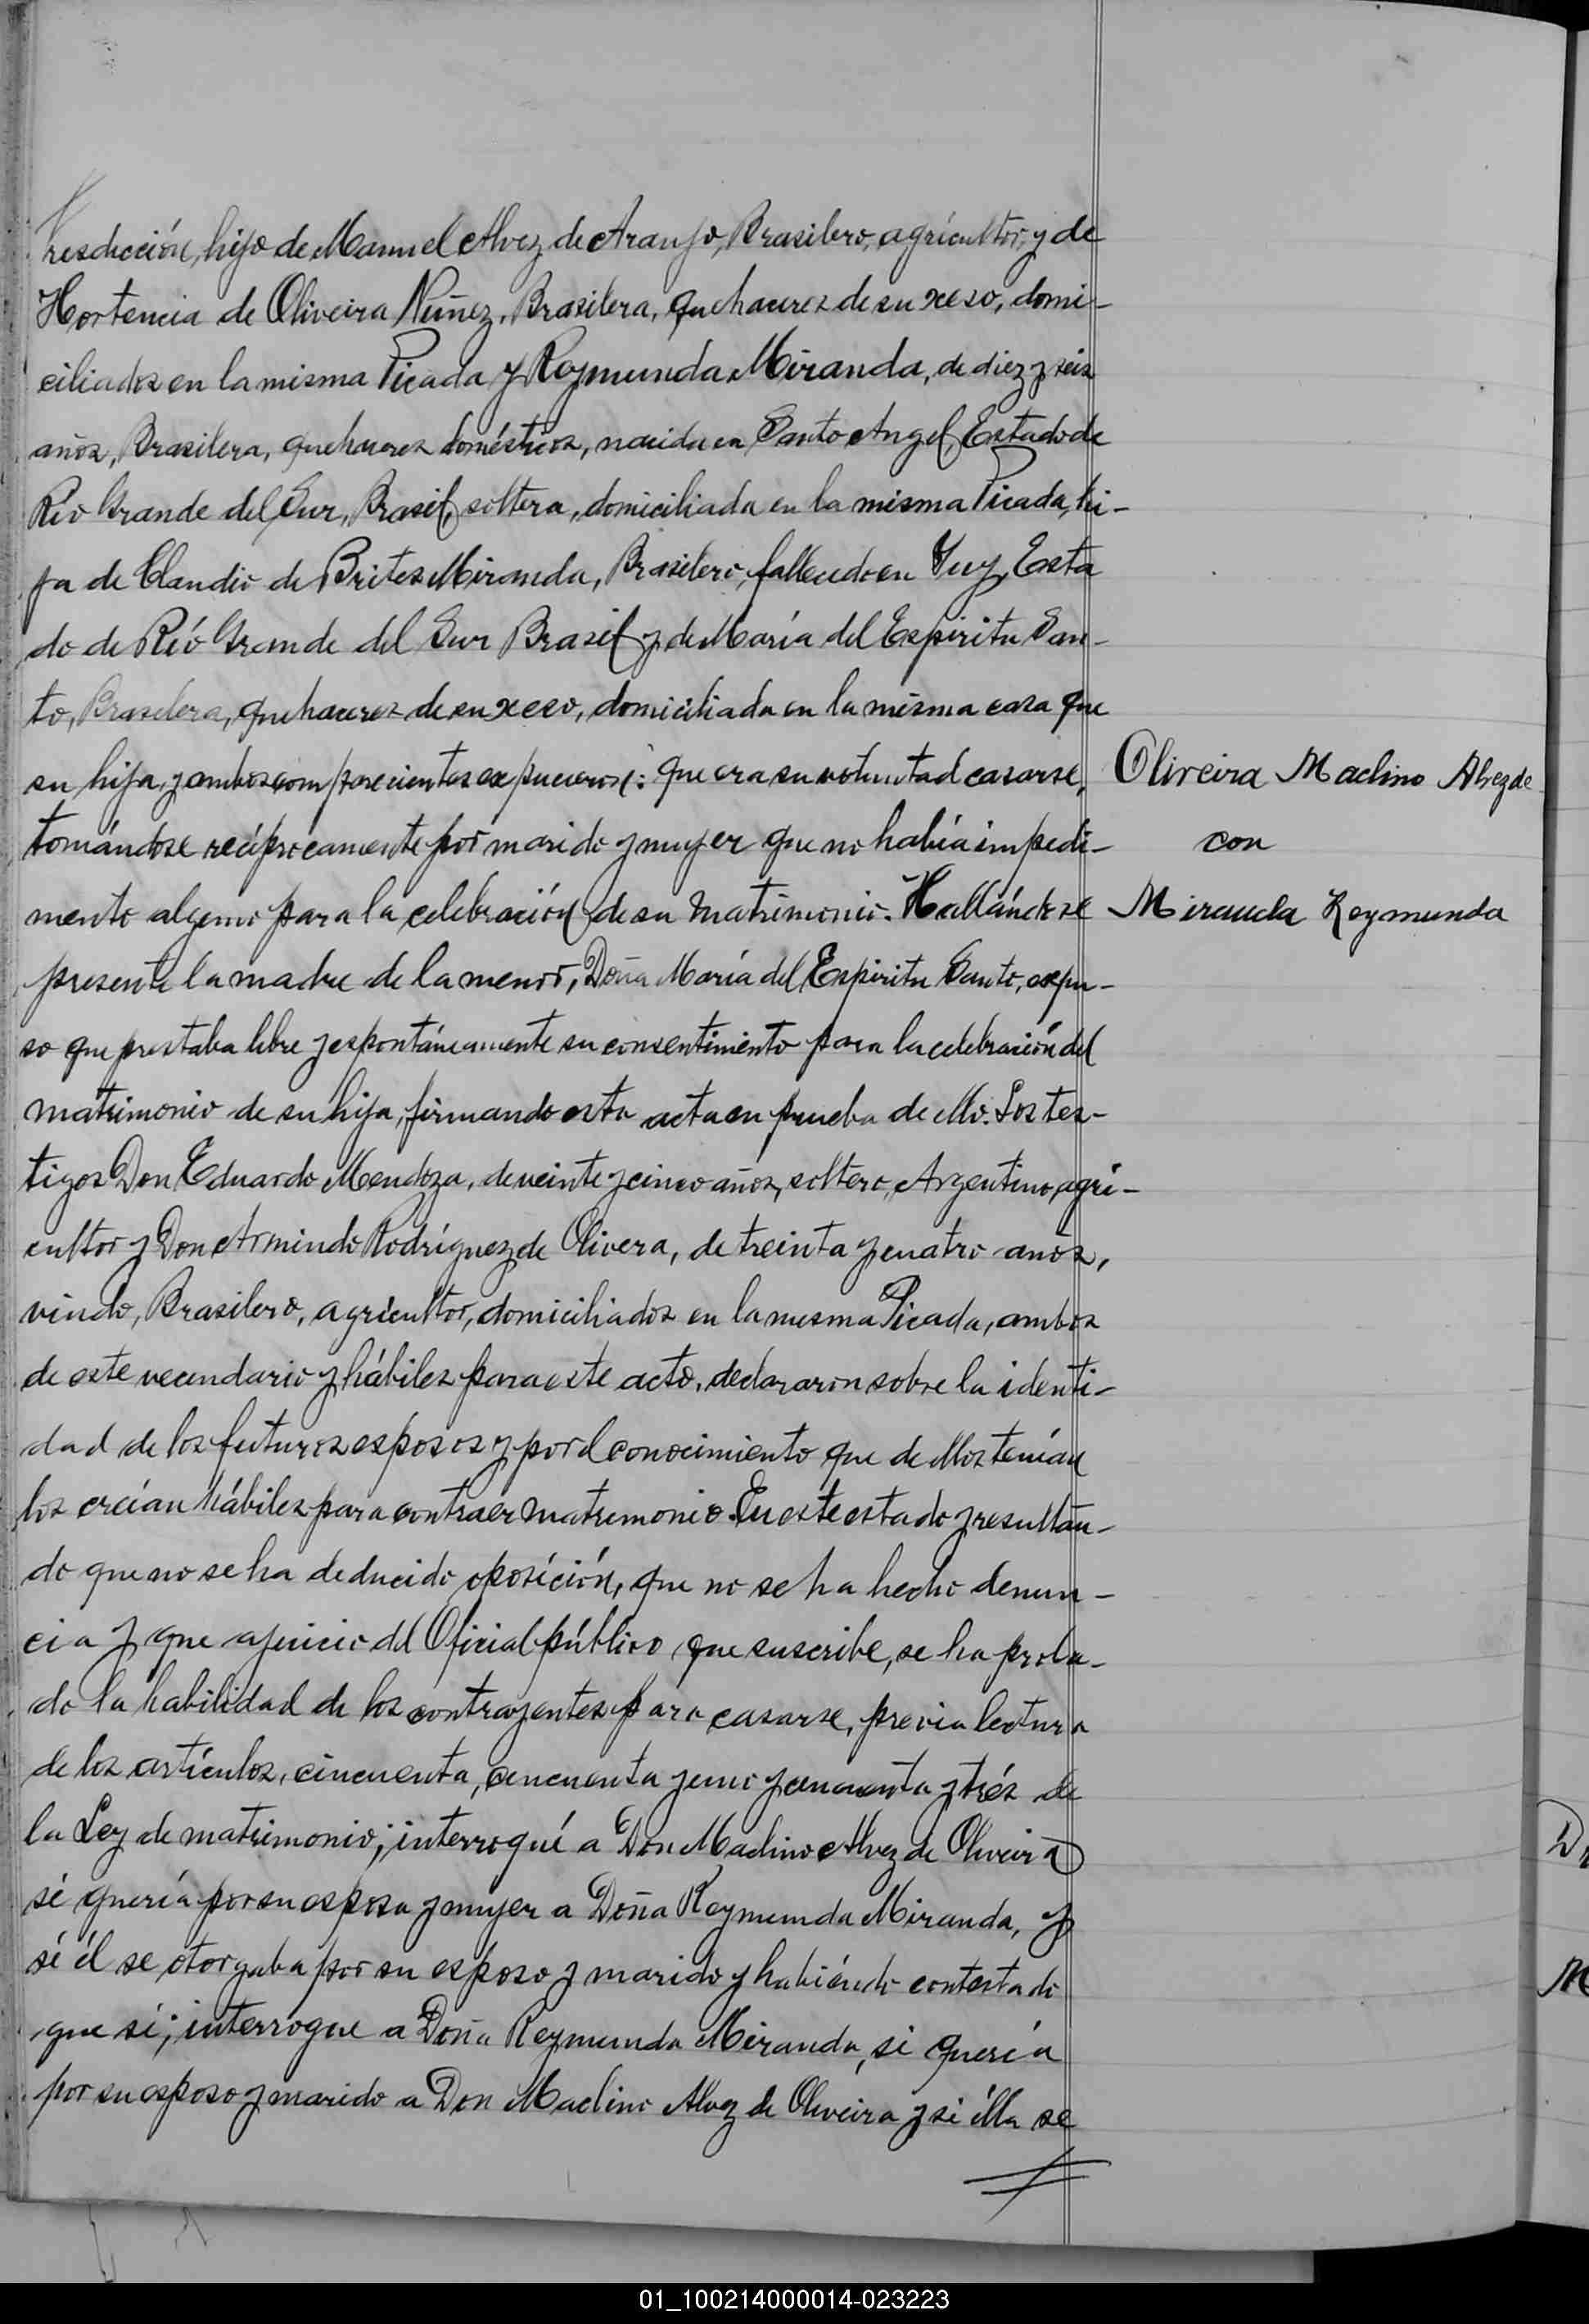 resdicción, hijo de Manuel Alvez de Araujo, Brasilero, agricultor, y de
Hortencia de Oliveira Nuñez, Brasilera, quehaceres de su xeso, domi-
ciliados en la misma Picada y Reymunda Miranda, de diez y seis
años, Brasilera, quehaceres domésticos, nacida en Santo Angel, Estado de
Rio Grande del Sur, Brasil, soltera, domiciliada en la misma Picada, hi-
ja de Claudio de Brites Miranda, Brasilero, fallecido en Yuy, Esta
do de Río Grande del Sur Brasil y de María del Espiritu San-
to, Brasilera, quehaceres de su xeso, domiciliada en la misma casa que
su hija, y ambos comparecientes expucieron: que era su voluntad casarse,
tomándose recíprocamente por marido y mujer que no había impedi-
mento alguno para la celebración de su matrimonio. Hallándose
presente la madre de la menor, Doña María del Espiritu Santo, expu-
so que prestaba libre y espontáneamente su consentimiento para la celebración del
matrimonio de su hija, firmando esta acta en prueba de ello. Los tes-
tigos Don Eduardo Mendoza, de veinte y cinco años, soltero, Argentino, agri-
cultor y Don Armindo Rodríguez de Olivera, de treinta y cuatro años,
viudo, Brasilero, agricultor, domiciliados en la misma Picada, ambos
de este vecindario y hábiles para este acto, declararon sobre la identi-
dad de los futuros esposos y por el conocimiento que de ellos tenían
los creían hábiles para contraer matrimonio. En este estado y resultan-
do que no se ha deducido oposición, que no se ha hecho denun-
cia y que a juicio del Oficial público que suscribe, se ha proba-
do la habilidad de los contrayentes para casarse, previa lectura
de los artículos, cincuenta, cincuenta y uno y cincuenta y trés de
la Ley de matrimonio; interrogué a Don Maclino Alvez de Oliveira
sí quería por su esposa y mujer a Doña Reymunda Miranda, y
sí él se otorgaba por su esposo y marido y habiéndo contestado
que sí; interrogue a Doña Reymunda Miranda, si quería
por su esposo y marido a Don Maclino Alvez de Oliveira y si élla se
Oliveira Maclino Alvez de
con
Miranda Reymunda
01_100214000014-023223